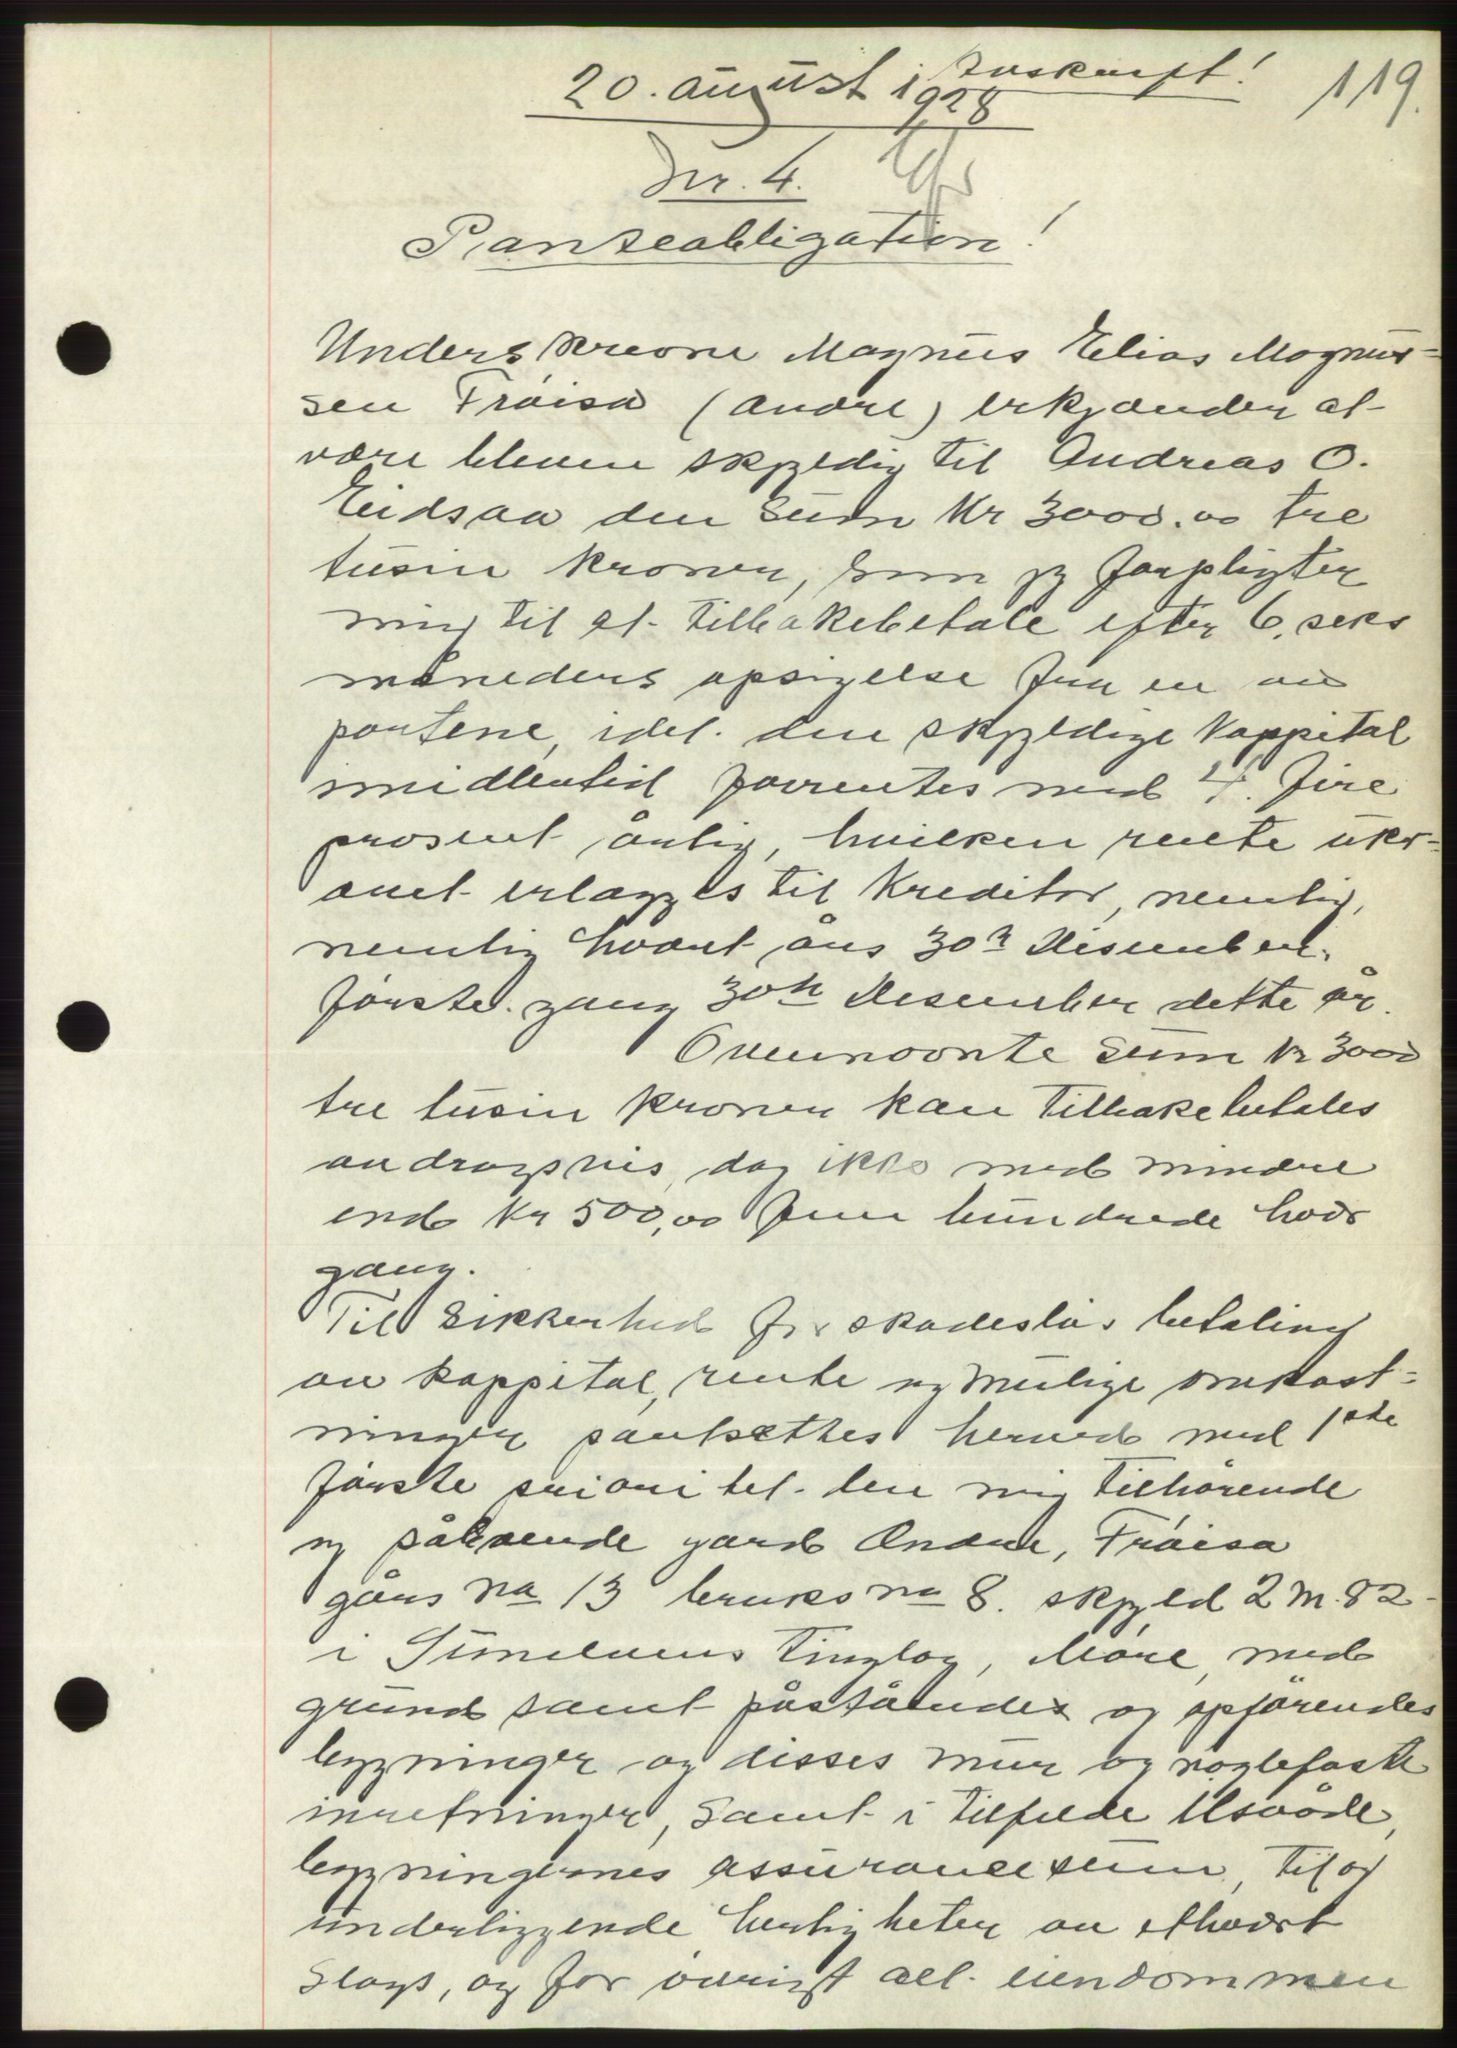 Avskrift!
20. august 1928
119.
Nr. 4.
Panteobligation!
Underskrevne Magnus Elias Magnus-
sen Fröisa (Andre) erkjænder at
være bleven skyldig til Andreas O.
Eidsaa den sum Kr 3000.00 tre
tusin kroner, som jeg forpligter
mig til at tilbakebetale efter 6. seks
måneders opsigelse fra en av
partene, idet den skyldige kappital
imidlertid forrentes med 4. fire
prosent årlig, hvilken rente uker-
anet erlægges til kreditor, nemlig,
nemlig hvert års 30n Desember,
förste gang 30te Desember dette år.
Ovennevnte sum kr 3000
tre tusin kroner kan tilbakebetales
avdragsvis, dog ikke med mindre
end kr 500,00 fem hundrede hver
gang.
Til sikkerhed for skadeslös betaling
av kappital, rente og mulige omkost-
ninger pantsættes herved med 1ste
förste prioritet den mig tilhörende
og påboende gard Andre, Fröisa
gårs no 13 bruks no 8. skyld 2 M. 82
i Sunelvens tinglag, Möre, med
grund samt påståendes og opförendes
bygninger og disses mur og naglefaste
inretninger, samt i tilfelde Ilsvåde,
bygningernes assuransesum, til og
underliggende herligheter av ethvert
slags, og for övrigt alt eiendommen